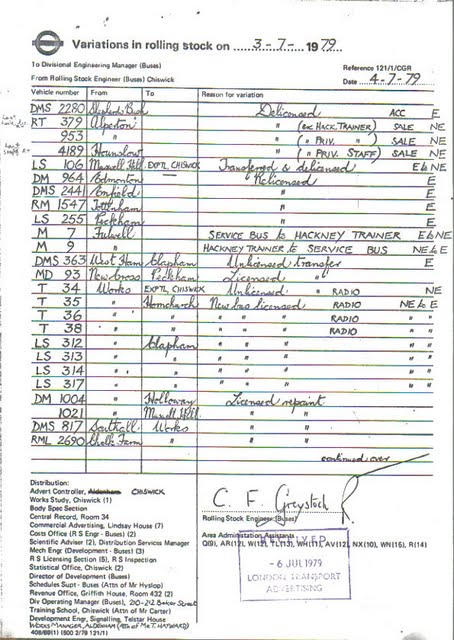 Variations in rolling stock on 3-7- 1979
To Divisional Engineering Manager (Buses)
Reference 121/1/CGR
From Rolling Stock Engineer (Buses) Chiswick
Date 4-7-79
Vehicle number From To Reason for variation
DMS 2280 Shepherds Bush Delicensed ACC E
RT 379 Alperton " (ex HACK. TRAINER) SALE NE
953 " " ( " PRIV. " ) SALE NE
4189 Hounslow " ( " PRIV. STAFF) SALE NE
LS 106 Muswell Hill EXPTL CHISWICK Transferred & delicensed E to NE
DM 964 Edmonton Delicensed E
DMS 2441 Enfield " E
RM 1547 Tottenham " E
LS 255 Peckham " E
M 7 Fulwell SERVICE BUS to HACKNEY TRAINER E to NE
M 9 " HACKNEY TRAINER to SERVICE BUS NE to E
DMS 363 West Ham Clapham Unlicensed transfer E
MD 93 New Cross Peckham Licensed "
T 34 Works EXPTL CHISWICK Unlicensed " RADIO NE
T 35 " Hornchurch New bus licensed RADIO NE to E
T 36 " " " " " RADIO " "
T 38 " " " " " RADIO " "
LS 312 " Clapham " " " " "
LS 313 " " " " " " "
LS 314 " " " " " " "
LS 317 " " " " " " "
DM 1004 " Holloway Licensed repaint
1021 " Muswell Hill " "
DMS 817 Southall Works " "
RML 2690 Chalk Farm " " "
continued over
Distribution:
Advert Controller, Aldenham CHISWICK
Works Study, Chiswick (1)
Body Spec Section
Central Record, Room 34
Commercial Advertising, Lindsay House (7)
Costs Office (R S Engr - Buses) (2)
Scientific Adviser (2), Distribution Services Manager
Mech Engr (Development - Buses) (3)
R S Licensing Section (1), R S Inspection
Statistical Office, Chiswick (2)
Director of Development (Buses)
Schedules Supt - Buses (Attn of Mr Hyslop)
Revenue Office, Griffith House, Room 432 (2)
Div Operating Manager (Buses), 210-212 Baker Street
Training School, Chiswick (Attn of Mr Carter)
Development Engr, Signalling, Telstar House
WORKS MANAGER, ALDENHAM (Attn of Mr T. HAYWARD)
C. F. Greystock
Rolling Stock Engineer (Buses)
Area Administration Assistants
RECEIVED
- 6 JUL 1979
LONDON TRANSPORT
ADVERTISING